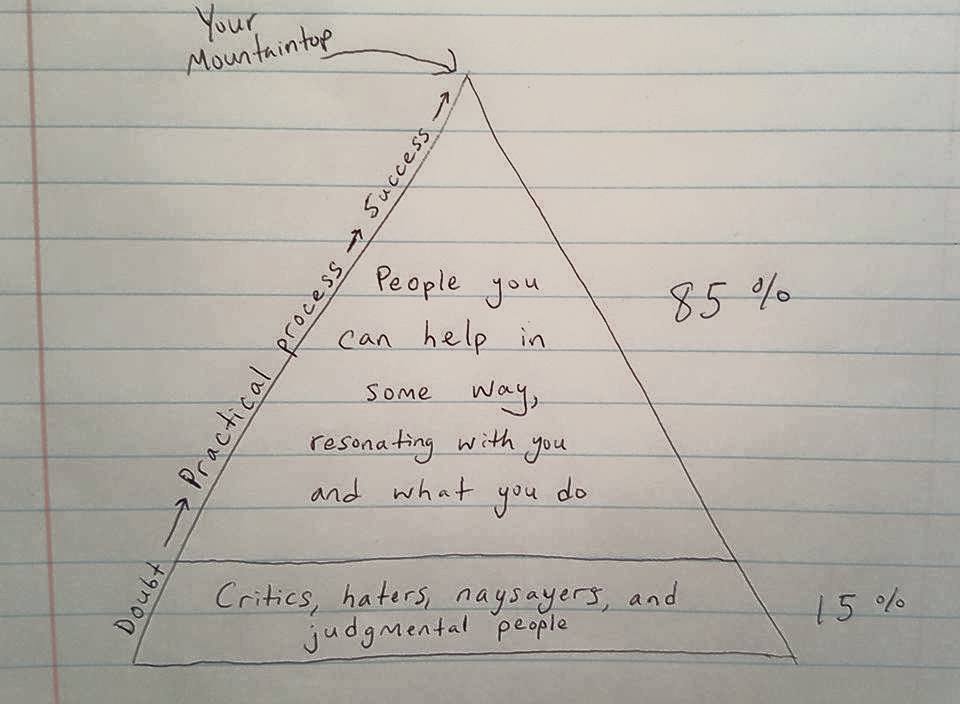 Your
Mountaintop
Doubt → Practical process → Success →
People you
can help in
some way,
resonating with you
and what you do
85 %
Critics, haters, naysayers, and
judgmental people
15 %